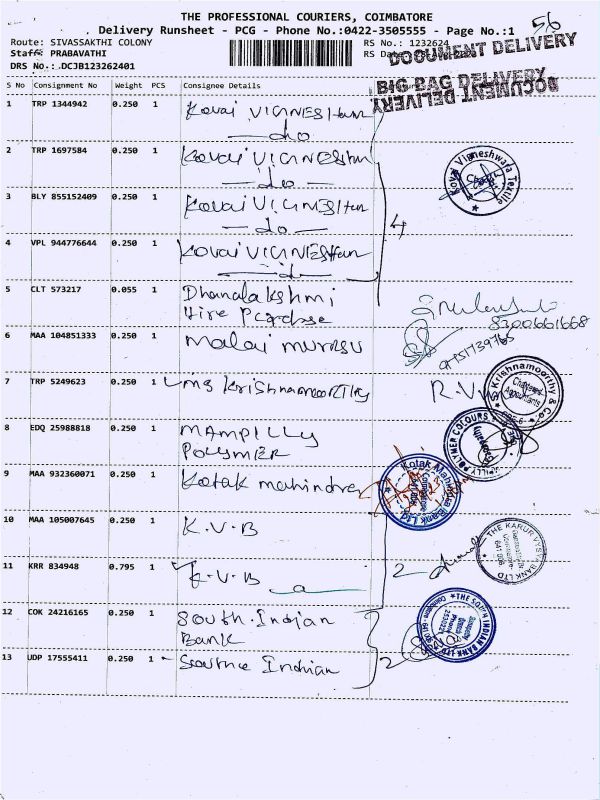 THE PROFESSIONAL COURIERS, COIMBATORE
Delivery Runsheet - PCG - Phone No.:0422-3505555 - Page No.:1
56
Route: SIVASSAKTHI COLONY
RS No.: 1232624
Staff: PRABAVATHI
RS Date
DOCUMENT DELIVERY
DRS No.: DCJB123262401
BIG BAG DELIVERY
DOCUMENT DELIVERY
S No Consignment No Weight PCS Consignee Details
1 TRP 1344942 0.250 1 Kovai VIGNESHwar
do
2 TRP 1697584 0.250 1 Kovai VIGNESHwar
do
Kovai Vigneshwara Textile
3 BLY 855152409 0.250 1 Kovai VIGNESHwar
do
4
4 VPL 944776644 0.250 1 Kovai VIGNESHwar
5 CLT 573217 0.055 1 Dhanalakshmi
Hire Purchase
8300661668
9751739765
6 MAA 104851333 0.250 1 Malai murasu
7 TRP 5249623 0.250 1 MS Krishnamoorthy
R.V
S Krishnamoorthy & Co.
Chartered Accountants
8 EDQ 25988818 0.250 1 MAMPILLY
POLYMER
POLYMER COLOURS
9 MAA 932360071 0.250 1 Kotak mahindra
Kotak Mahindra Bank Ltd
10 MAA 105007645 0.250 1 K.V.B
THE KARUR VYSYA BANK LTD
11 KRR 834948 0.795 1 K.V.B
2
12 COK 24216165 0.250 1 South Indian
Bank
THE SOUTH INDIAN BANK LTD
13 UDP 17555411 0.250 1 Southe Indian
2